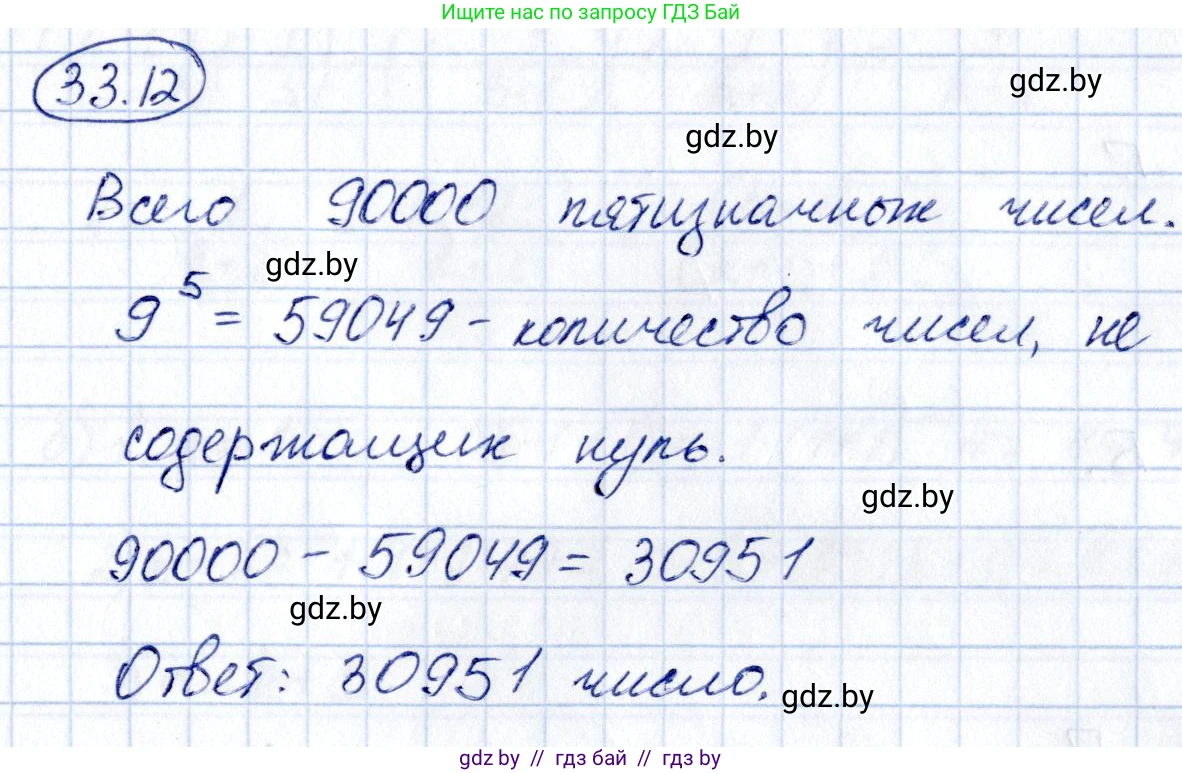 Ищите нас по запросу ГДЗ Бай
33.12
gdz.by
gdz.by
Всего 90000 пятизначных чисел.
gdz.by
9⁵ = 59049 - количество чисел, не
содержащих нуль.
gdz.by
90000 - 59049 = 30951
gdz.by
Ответ: 30951 число.
gdz.by
gdz.by // гдз бай // gdz.by